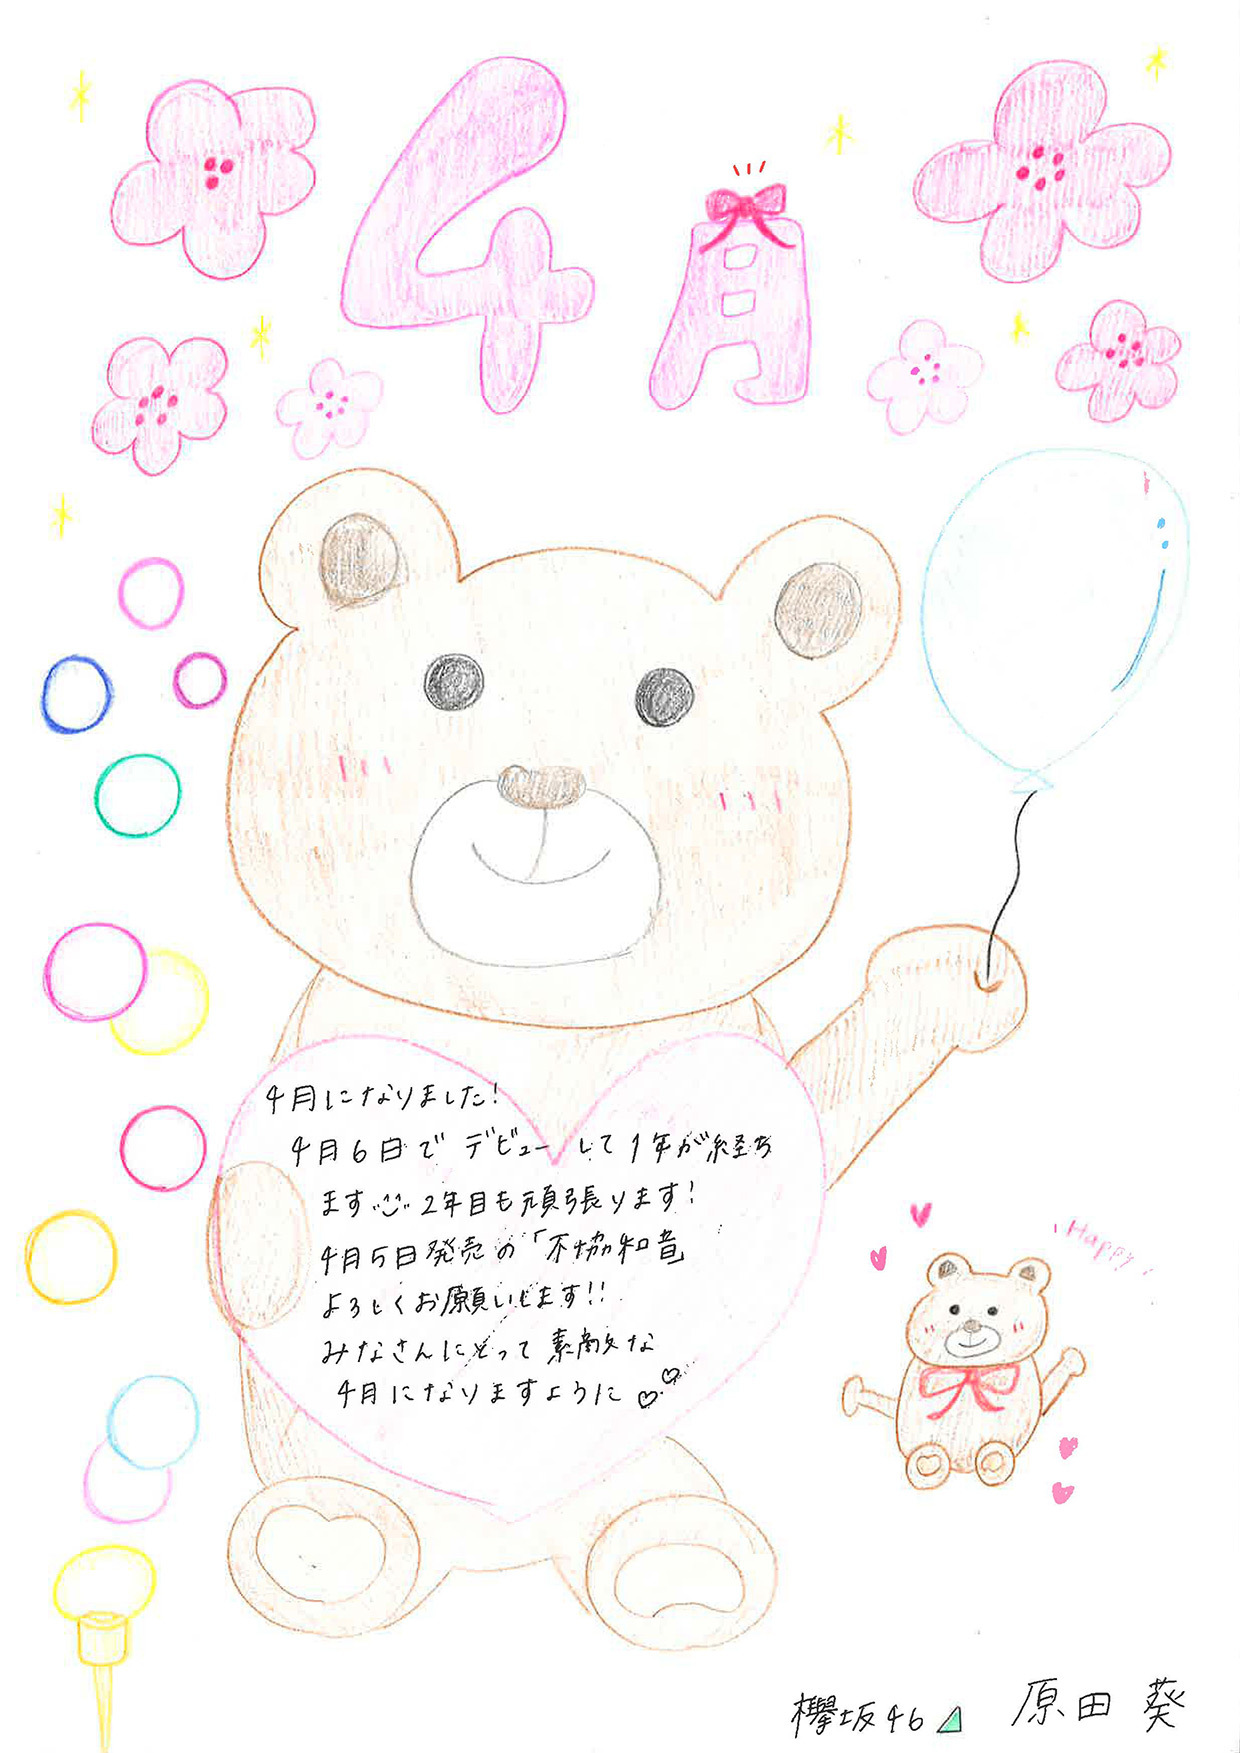 4月
4月になりました!
4月6日で デビューして1年が経ち
ます 2年目も頑張ります!
4月5日発売の「不協和音」
よろしくお願いします!!
みなさんにとって素敵な
4月になりますように♡♡
Happy
欅坂46 原田 葵